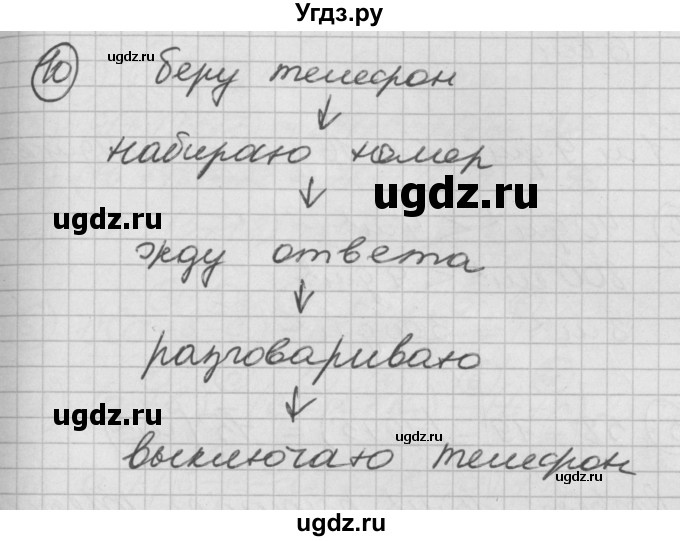 Угдз.ру
10 ugdz.ru беру телефон
↓
набираю номер
↓ ugdz.ru
ugdz.ru
жду ответа
↓
разговариваю
ugdz.ru ↓
ugdz.ru
выключаю телефон
ugdz.ru
ugdz.ru